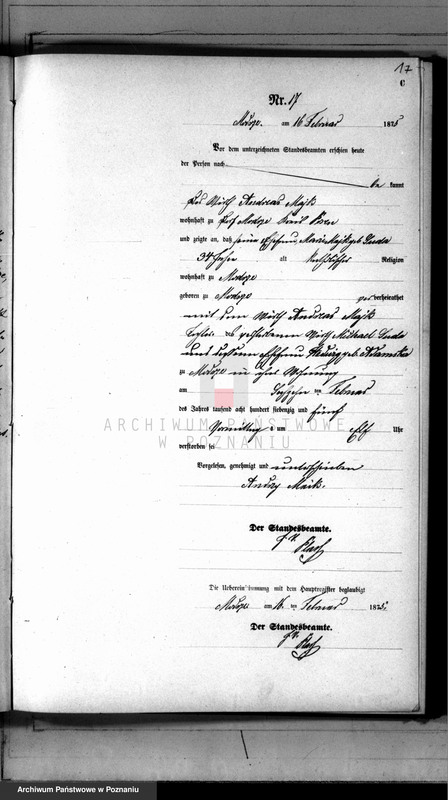 17
C
Nr. 17
am 16 Februar 1875
Vor dem unterzeichneten Standesbeamten erschien heute
der Person nach
be kannt
der Wirth Andreas Majk
wohnhaft zu Dorf
und zeigte an, daß seine Ehefrau Maria Majk geb. Duda
34 Jahre alt katholischer Religion
wohnhaft zu
geboren zu verheirathet
mit dem Wirth Andreas Majk
Tochter des Wirth Michael Duda
und dessen Ehefrau geb. Adamska
zu in ihrer Wohnung
am Februar
des Jahres tausend acht hundert siebenzig und fünf
Vormittags um Elf Uhr
verstorben sei
Vorgelesen, genehmigt und unterschrieben
Andrzy Maik.
Der Standesbeamte.
Die Uebereinstimmung mit dem Hauptregister beglaubigt
am 16. ten Februar 1875.
Der Standesbeamte.
ARCHIWUM PAŃSTWOWE
W POZNANIU
Archiwum Państwowe w Poznaniu